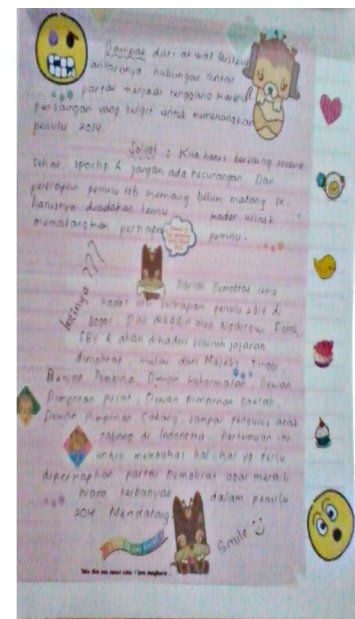 Dampak dari akibat tersebut
antaranya hubungan antar
partai menjadi tenggang karena
persaingan yang sengit untuk memenangkan
pemilu 2014.
Solusi : Kita harus bersaing secara
sehat, sportip & jangan ada kecurangan. Dan
pemilu tsb memang belum matang se
harusnya diadakan temu kader untuk
mematangkan pemilu.
Intinya ???
Partai Demokrat
kader pemilu 2014 di
Bogor. Dan dihadiri oleh
SBY & akan dihadiri seluruh jajaran
demokrat, mulai dari Majelis Tinggi
Dewan Pembina, Dewan kehormatan, Dewan
Pimpinan pusat, Dewan pimpinan daerah
Dewan Pimpinan Cabang, sampai pengurus anak
cabang di Indonesia. Pertemuan itu
untuk membahas hal-hal yg perlu
dipersiapkan partai Demokrat agar meraih
suara terbanyak dalam pemilu
2014 Mendatang
Smile